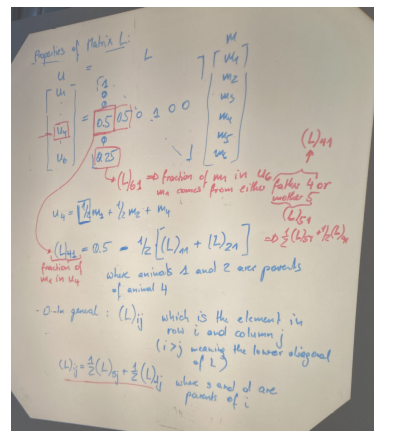 Properties of Matrix L:
u = L m
[ u1 ⋮ u4 ⋮ u6 ] = [ 1 0 0 0.5 0.5 0 1 0 0 0 0.25 ] [ m1 m2 m3 m4 m5 m6 ]
(L)41
(L)61 ⇒ fraction of m1 in u6
m1 comes from either father 4 or
mother 5
(L)51
⇒ 1/2 (L)51 + 1/2 (L)41
u4 = 1/2 m1 + 1/2 m2 + m4
(L)41 = 0.5 = 1/2 [ (L)11 + (L)21 ]
fraction of
m1 in u4
where animals 1 and 2 are parents
of animal 4
- In general : (L)ij which is the element in
row i and column j
(i > j meaning the lower diagonal
of L)
(L)ij = 1/2 (L)sj + 1/2 (L)dj where s and d are
parents of i